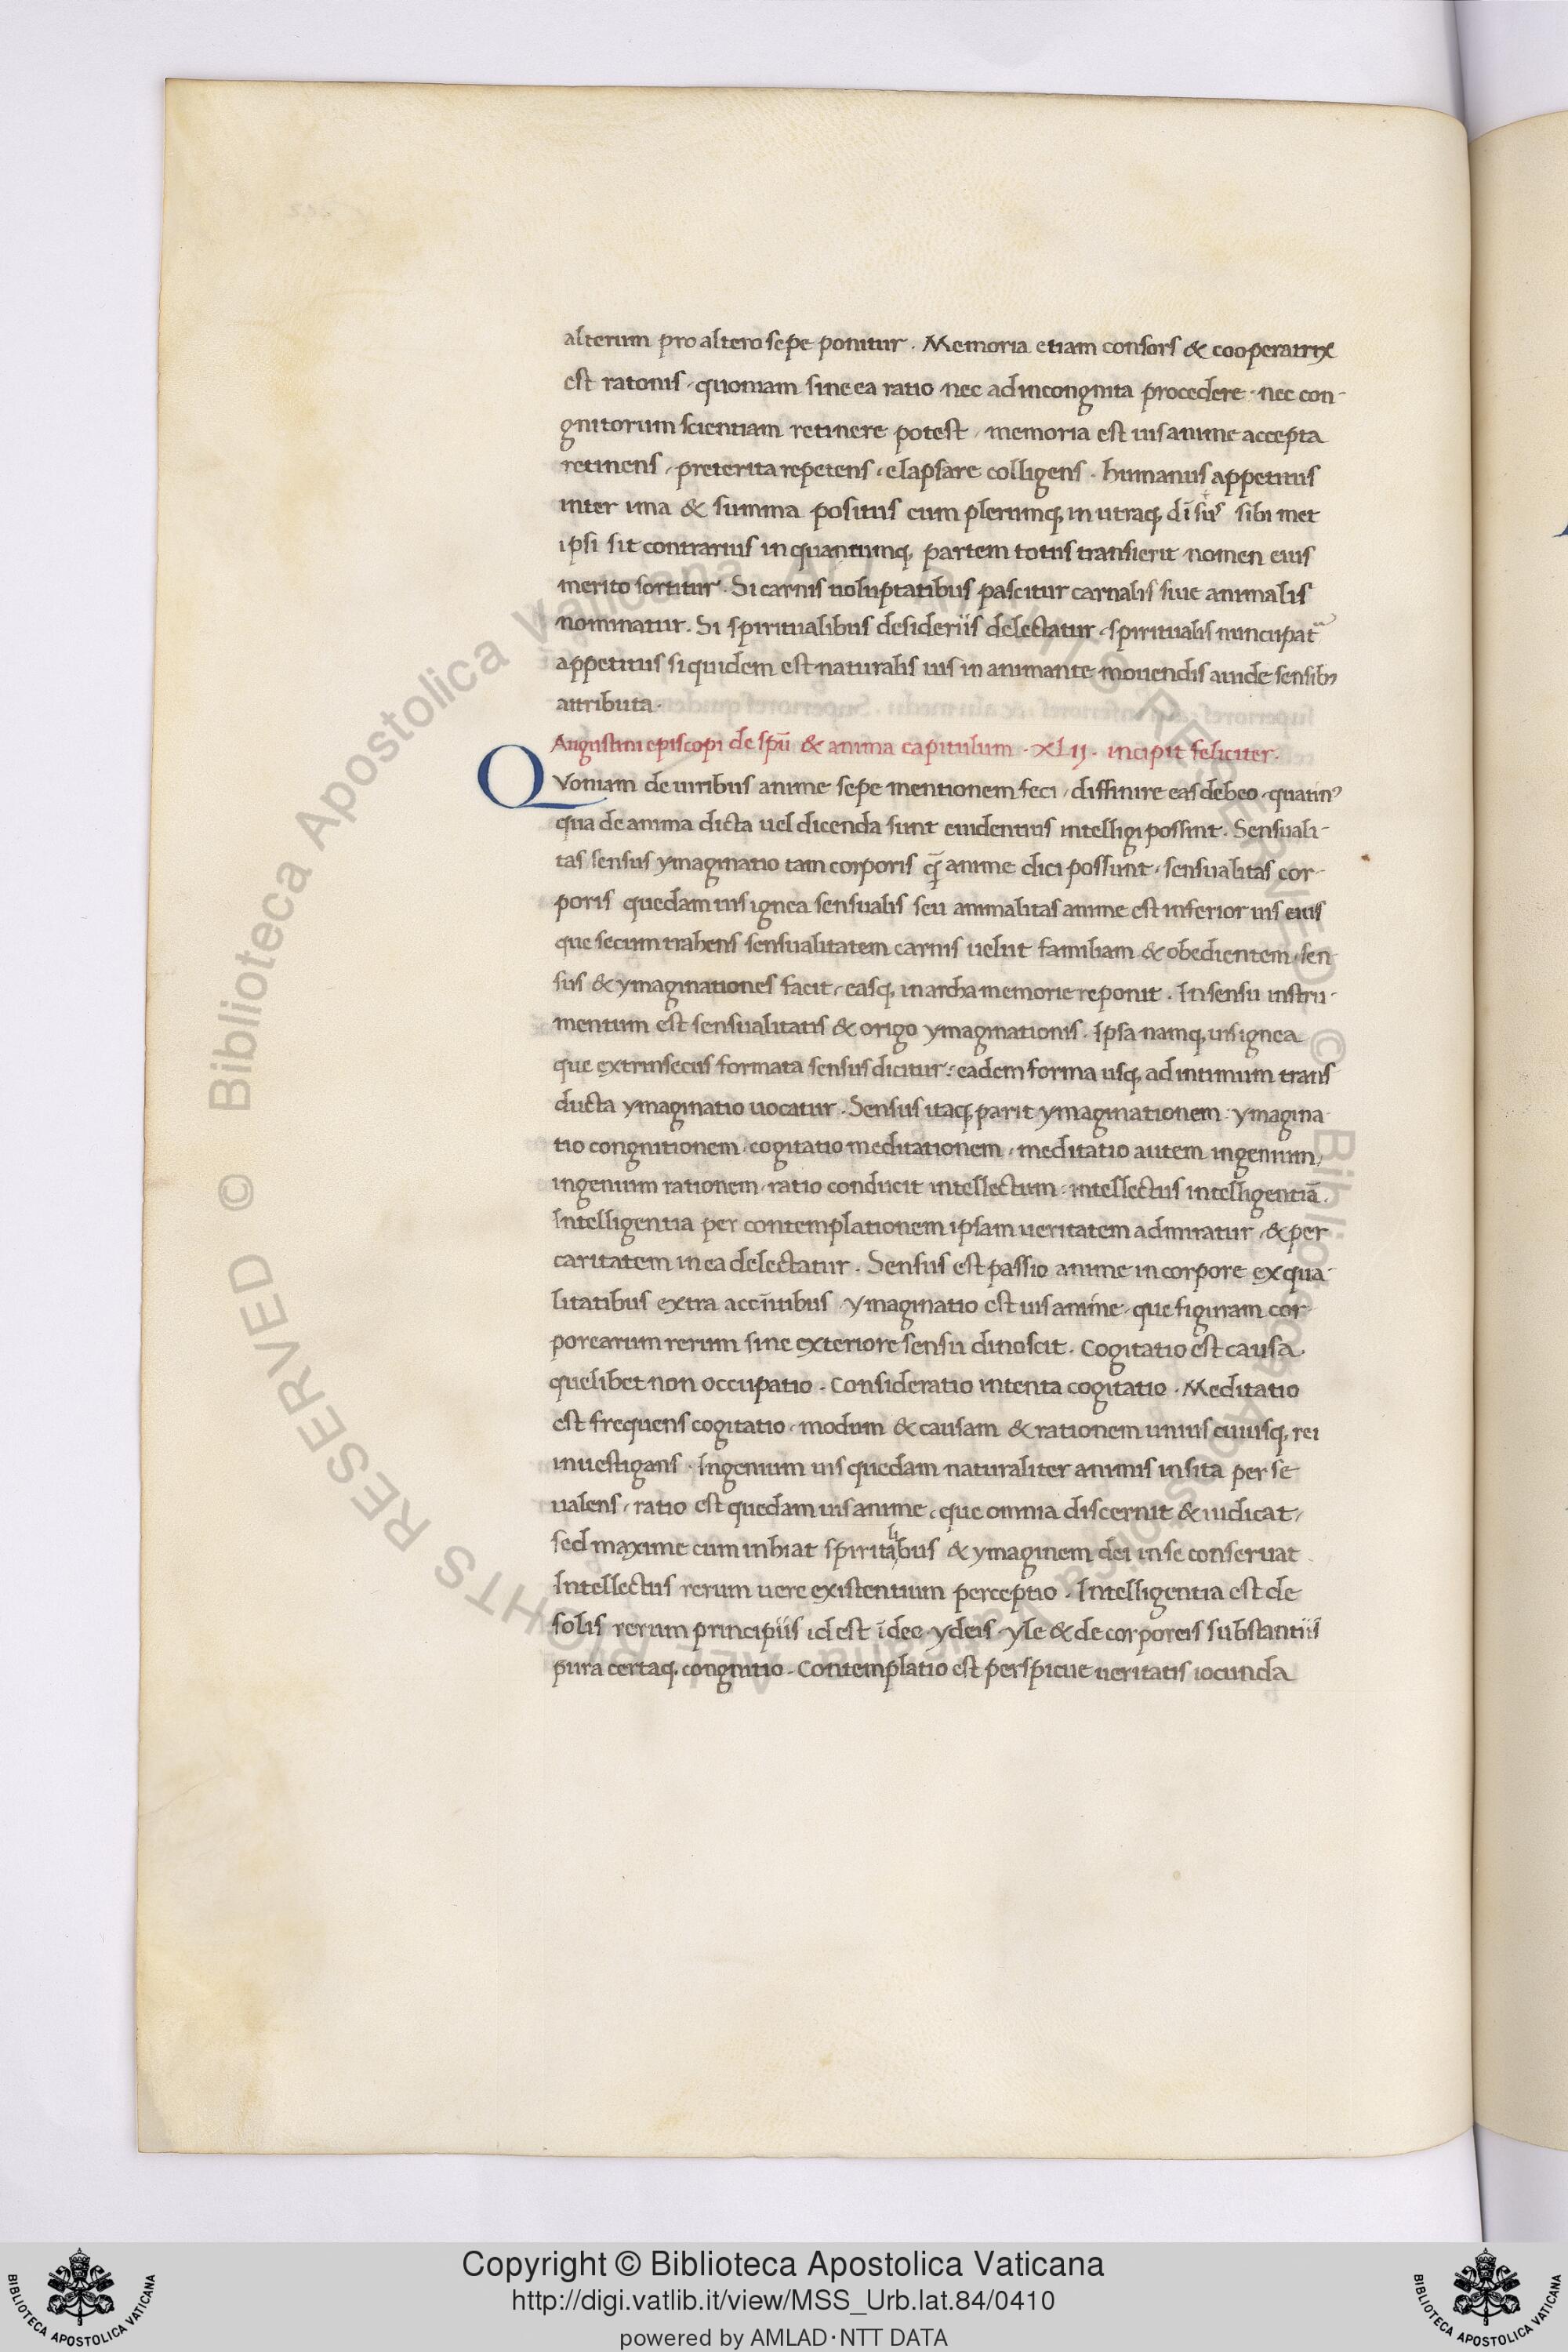 alterum pro altero sepe ponitur. Memoria etiam consors & cooperatrix
est ratonis, quoniam sine ea ratio nec ad incongnita procedere, nec con-
gnitorum scientiam retinere potest, memoria est uis anime accepta
retinens, preterita repetens, elapsare colligens. humanus appetitus
inter ima & summa positus cum plerumq, in utraq, sibi met
ipsi sit contrarius in quantumq, partem totus transierit nomen eius
merito sortitur. Si carnis uoluptatibus pascitur carnalis siue animalis
nominatur. Si spiritualibus desideriis delectatur, spiritualis nuncupat᷑
appetitus si quidem est naturalis uis in animante mouendis auide sensibꝰ
attributa.
Augustini episcopi de spū & anima capitulum .XLII. incipit feliciter.
QVoniam de uiribus anime sepe mentionem feci, diffinire eas debeo, quatinꝰ
qua de anima dicta uel dicenda sunt euidentius intelligi possint. Sensuali-
tas sensus ymaginatio tam corporis q̄ anime dici possunt, sensualitas cor-
poris quedam uis ignea sensualis seu animalitas anime est inferior uis eius
que secum trahens sensualitatem carnis uelut famulam & obedientem, sen
sus & ymaginationes facit, easq, in archa memorie reponit. In sensu instru-
mentum est sensualitatis & origo ymaginationis. Ipsa namq, uis ignea
que extrinsecus formata sensus dicitur: eadem forma usq, ad intimum trans
ducta ymaginatio uocatur. Sensus itaq, parit ymaginationem, ymagina
tio congnitionem, cogitatio meditationem, meditatio autem ingenium,
ingenium rationem, ratio conducit intellectum, intellectus intelligentiā.
Intelligentia per contemplationem ipsam ueritatem admiratur, & per
caritatem in ea delectatur. Sensus est passio anime in corpore ex qua-
litatibus extra accn̄tibus, ymaginatio est uis anime, que figuram cor-
porearum rerum sine exteriore sensu dinoscit. Cogitatio est causa
quelibet non occupatio. Consideratio intenta cogitatio. Meditatio
est frequens cogitatio, modum & causam & rationem unius cuiusq, rei
inuestigans. Ingenium uis quedam naturaliter animis insita per se
ualens, ratio est quedam uis anime, que omnia discernit & iudicat,
sed maxime cum inhiat spiritalibus & ymaginem dei in se conseruat
Intellectus rerum uere existentium perceptio. Intelligentia est de
solis rerum principiis id est īdee, ydeis, yle & de corporeis substantiis
pura certaq, congnitio. Contemplatio est perspicue ueritatis iocunda
© Biblioteca Apostolica Vaticana ALL RIGHTS RESERVED
Copyright © Biblioteca Apostolica Vaticana
http://digi.vatlib.it/view/MSS_Urb.lat.84/0410
powered by AMLAD·NTT DATA
BIBLIOTECA APOSTOLICA VATICANA
BIBLIOTECA APOSTOLICA VATICANA